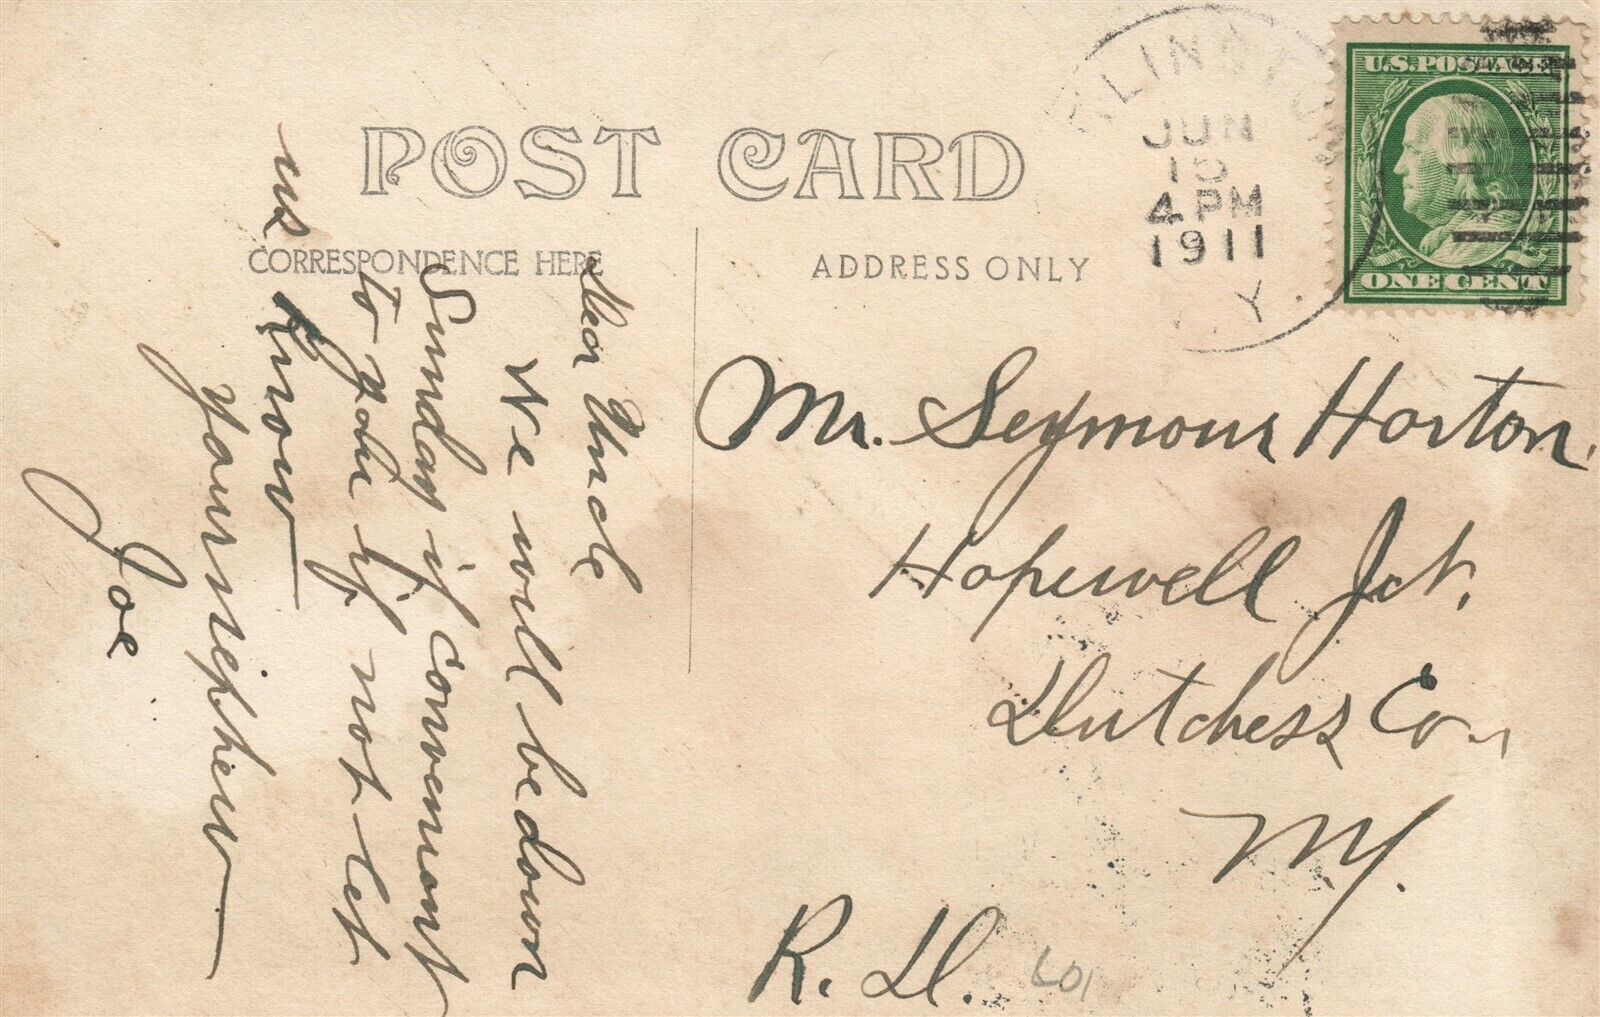 POST CARD
CORRESPONDENCE HERE
ADDRESS ONLY
JUN
13
4 PM
1911
Y.
U.S. POSTAGE
ONE CENT
Dear Uncle
We will be down
Sunday if convenient
to you if not let
us know
Your nephew
Joe
Mr. Seymour Horton,
Hopewell Jct.
Dutchess Co.,
NY.
R. D.